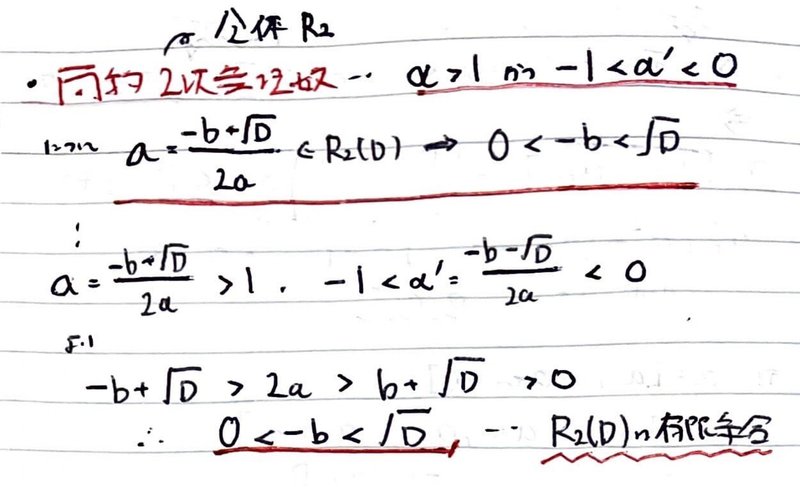 全体 R₂
・簡約2次無理数 … α > 1 かつ -1 < α' < 0
について α = (-b+√D)/2a ∈ R₂(D) ⇒ 0 < -b < √D
⋮
α = (-b+√D)/2a > 1 . -1 < α' = (-b-√D)/2a < 0
より
-b+√D > 2a > b+√D > 0
∴ 0 < -b < √D … R₂(D)は有限集合